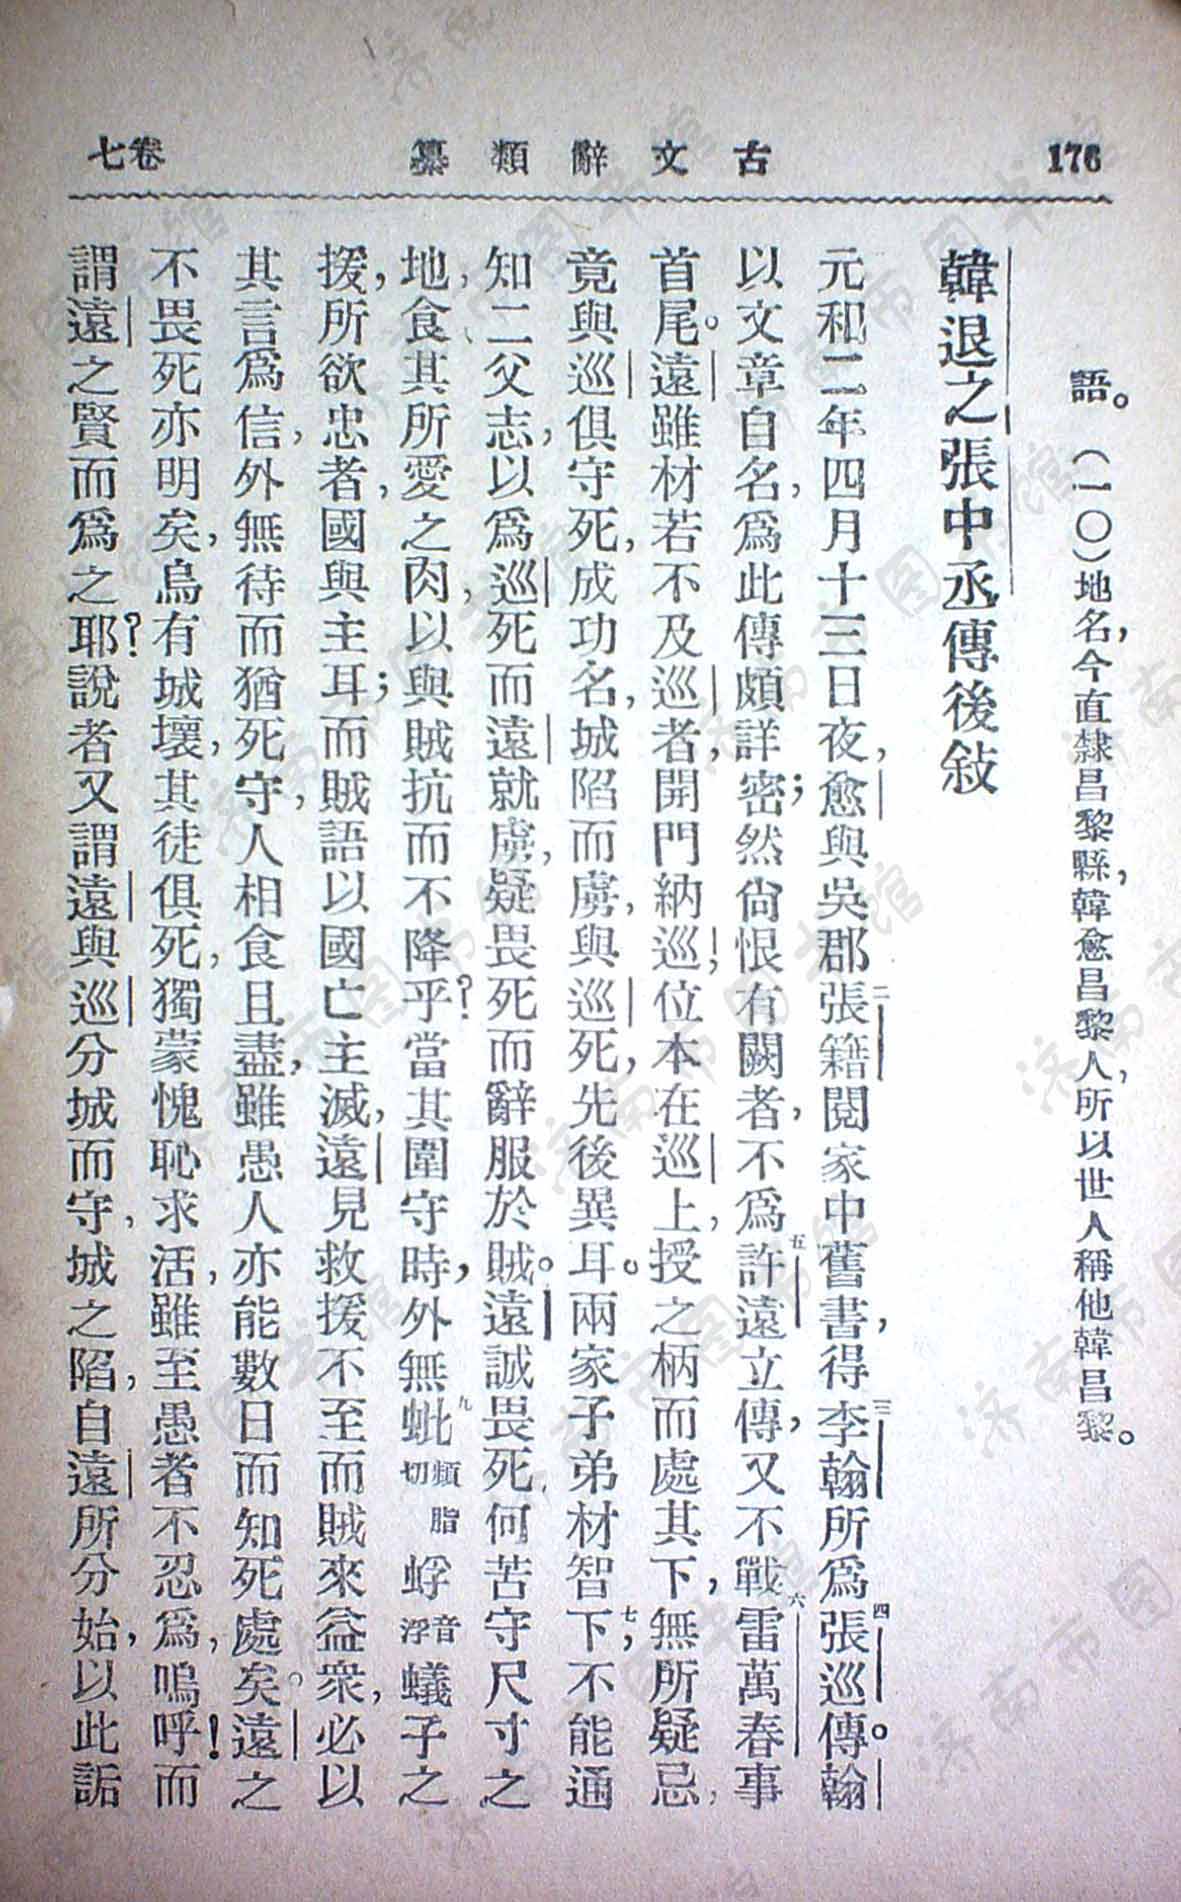 176
古文辭類纂
卷七
語。（一〇）地名，今直隸昌黎縣，韓愈昌黎人，所以世人稱他韓昌黎。
韓退之張中丞傳後敍
元和二年四月十三日夜，愈與吳郡張籍二閱家中舊書，得李翰三所爲張巡四傳。翰
以文章自名，爲此傳頗詳密；然尙恨有闕者，不爲許遠五立傳，又不戰雷萬春六事
首尾。遠雖材若不及巡者，開門納巡，位本在巡上，授之柄而處其下，無所疑忌，
竟與巡俱守死，成功名，城陷而虜，與巡死，先後異耳。兩家子弟材智下七，不能通
知二父志，以爲巡死而遠就虜，疑畏死而辭服於賊。遠誠畏死，何苦守尺寸之
地，食其所愛之肉，以與賊抗而不降乎？當其圍守時，外無蚍九頻脂切蜉音浮蟻子之
援，所欲忠者，國與主耳；而賊語以國亡主滅，遠見救援不至而賊來益衆，必以
其言爲信，外無待而猶死守，人相食且盡，雖愚人亦能數日而知死處矣。遠之
不畏死亦明矣，烏有城壞，其徒俱死，獨蒙愧恥求活，雖至愚者不忍爲，嗚呼！而
謂遠之賢而爲之耶？說者又謂遠與巡分城而守，城之陷，自遠所分始，以此詬